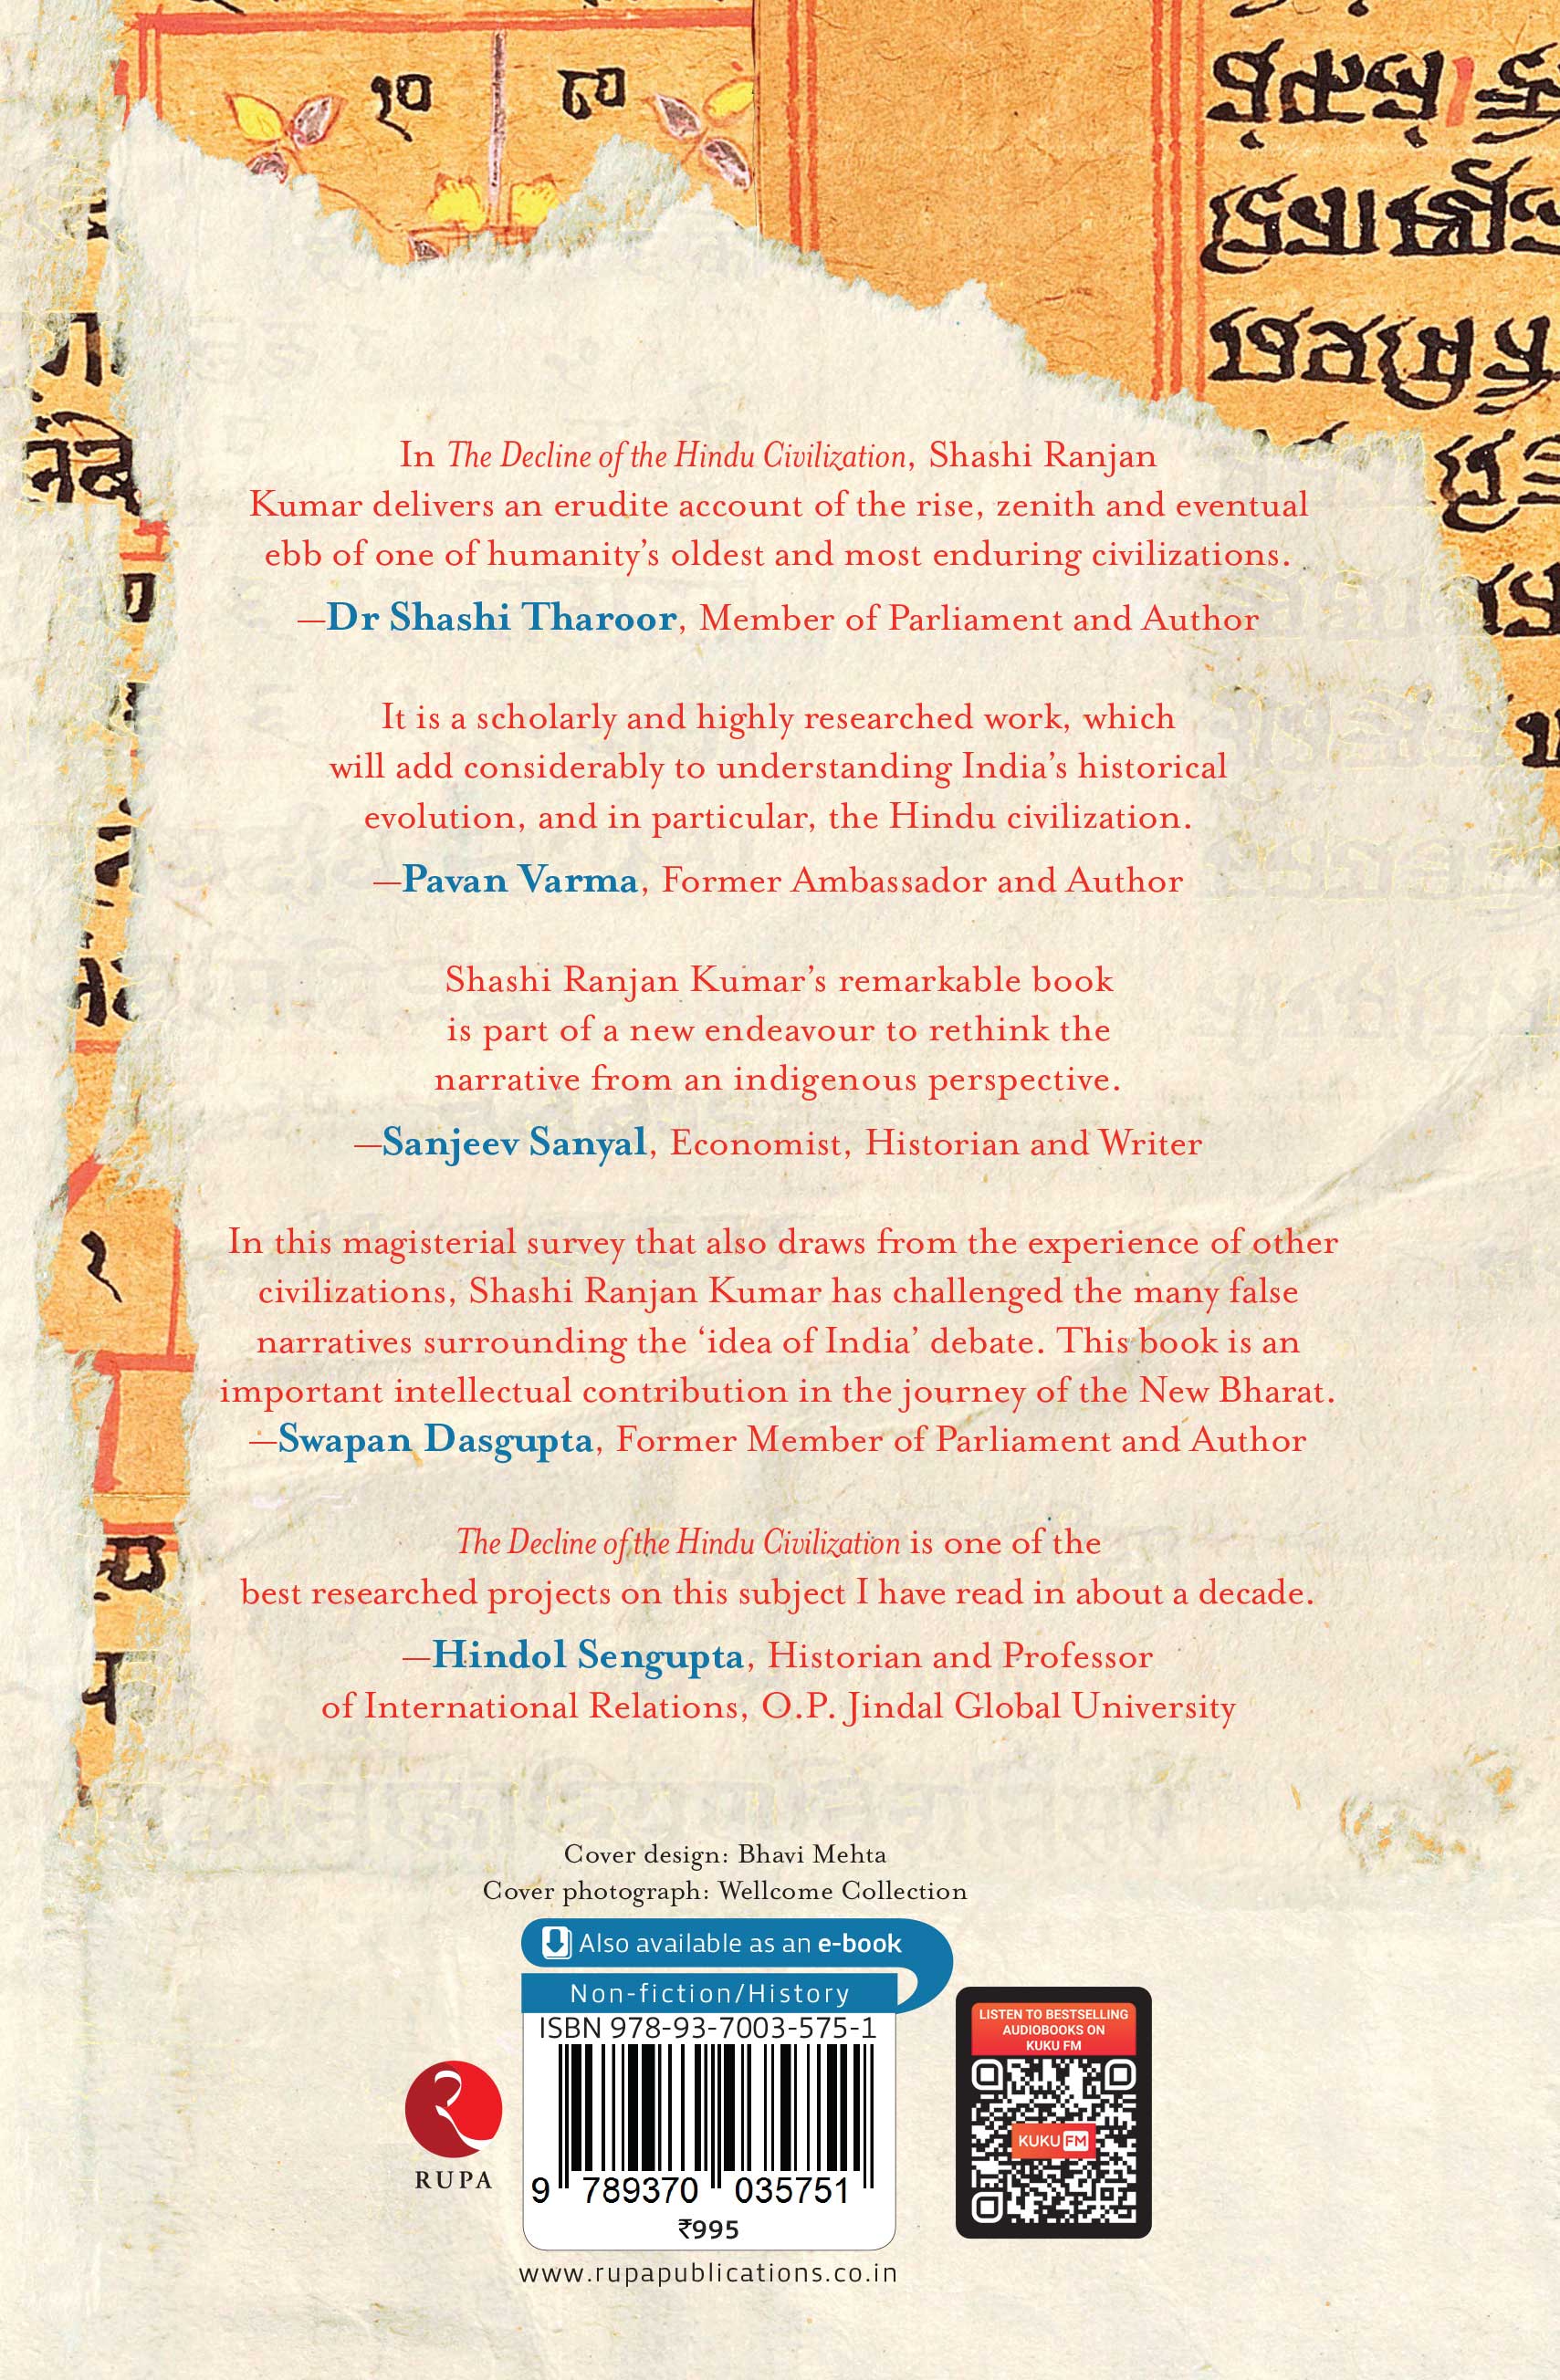 १०
In The Decline of the Hindu Civilization, Shashi Ranjan
Kumar delivers an erudite account of the rise, zenith and eventual
ebb of one of humanity’s oldest and most enduring civilizations.
—Dr Shashi Tharoor, Member of Parliament and Author
It is a scholarly and highly researched work, which
will add considerably to understanding India’s historical
evolution, and in particular, the Hindu civilization.
—Pavan Varma, Former Ambassador and Author
Shashi Ranjan Kumar’s remarkable book
is part of a new endeavour to rethink the
narrative from an indigenous perspective.
—Sanjeev Sanyal, Economist, Historian and Writer
In this magisterial survey that also draws from the experience of other
civilizations, Shashi Ranjan Kumar has challenged the many false
narratives surrounding the ‘idea of India’ debate. This book is an
important intellectual contribution in the journey of the New Bharat.
—Swapan Dasgupta, Former Member of Parliament and Author
The Decline of the Hindu Civilization is one of the
best researched projects on this subject I have read in about a decade.
—Hindol Sengupta, Historian and Professor
of International Relations, O.P. Jindal Global University
Cover design: Bhavi Mehta
Cover photograph: Wellcome Collection
Also available as an e-book
Non-fiction/History
ISBN 978-93-7003-575-1
9 789370 035751
₹995
www.rupapublications.co.in
RUPA
LISTEN TO BESTSELLING
AUDIOBOOKS ON
KUKU FM
KUKU FM